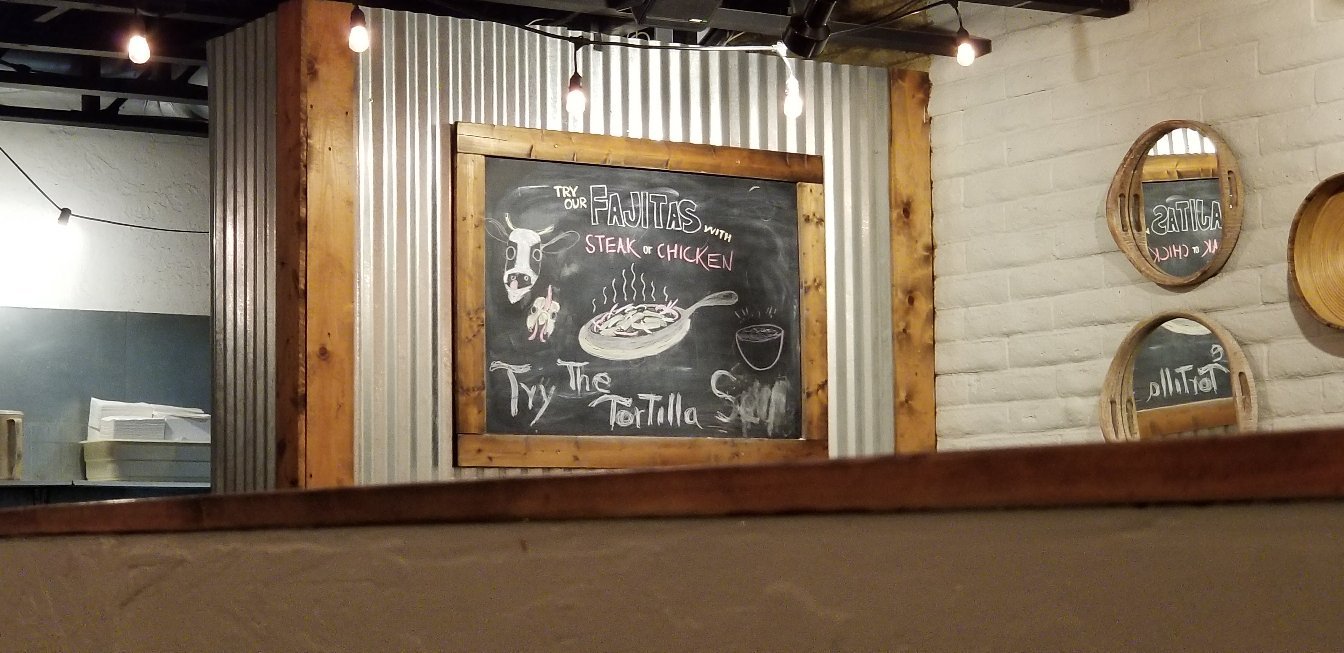 TRY
OUR FAJITAS WITH
STEAK or CHICKEN
Try The
Tortilla
AJITAS
AK or CHICK
e
Tortilla